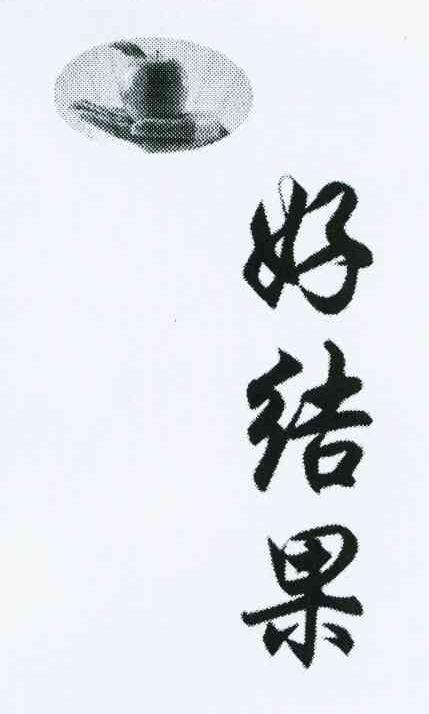 好结果